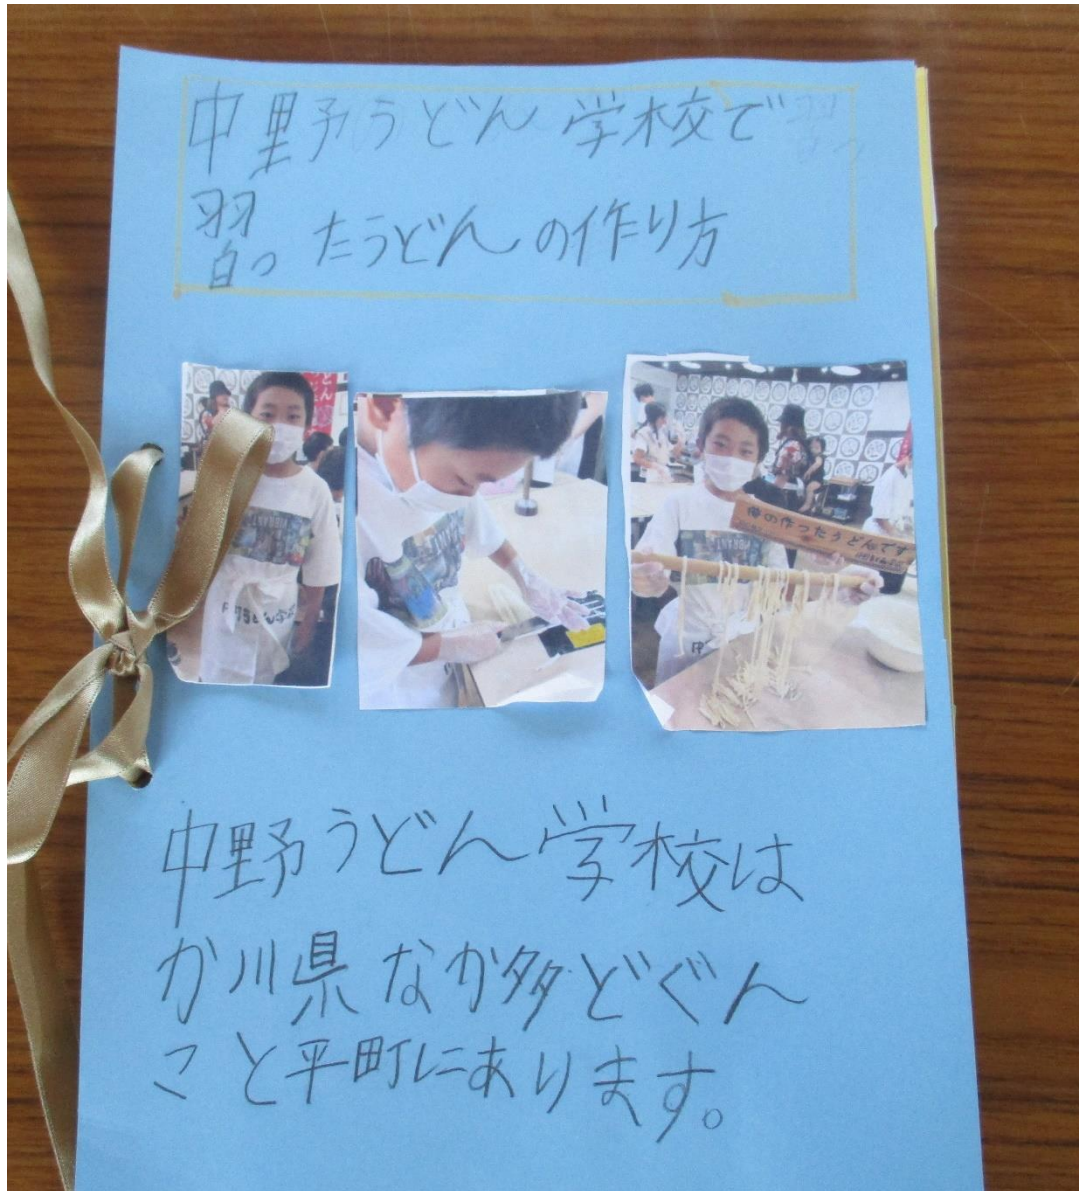 中野うどん学校で
習ったうどんの作り方
どん
俺の作ったうどんです
中野うどん学校は
か川県なか多どぐん
こと平町にあります。